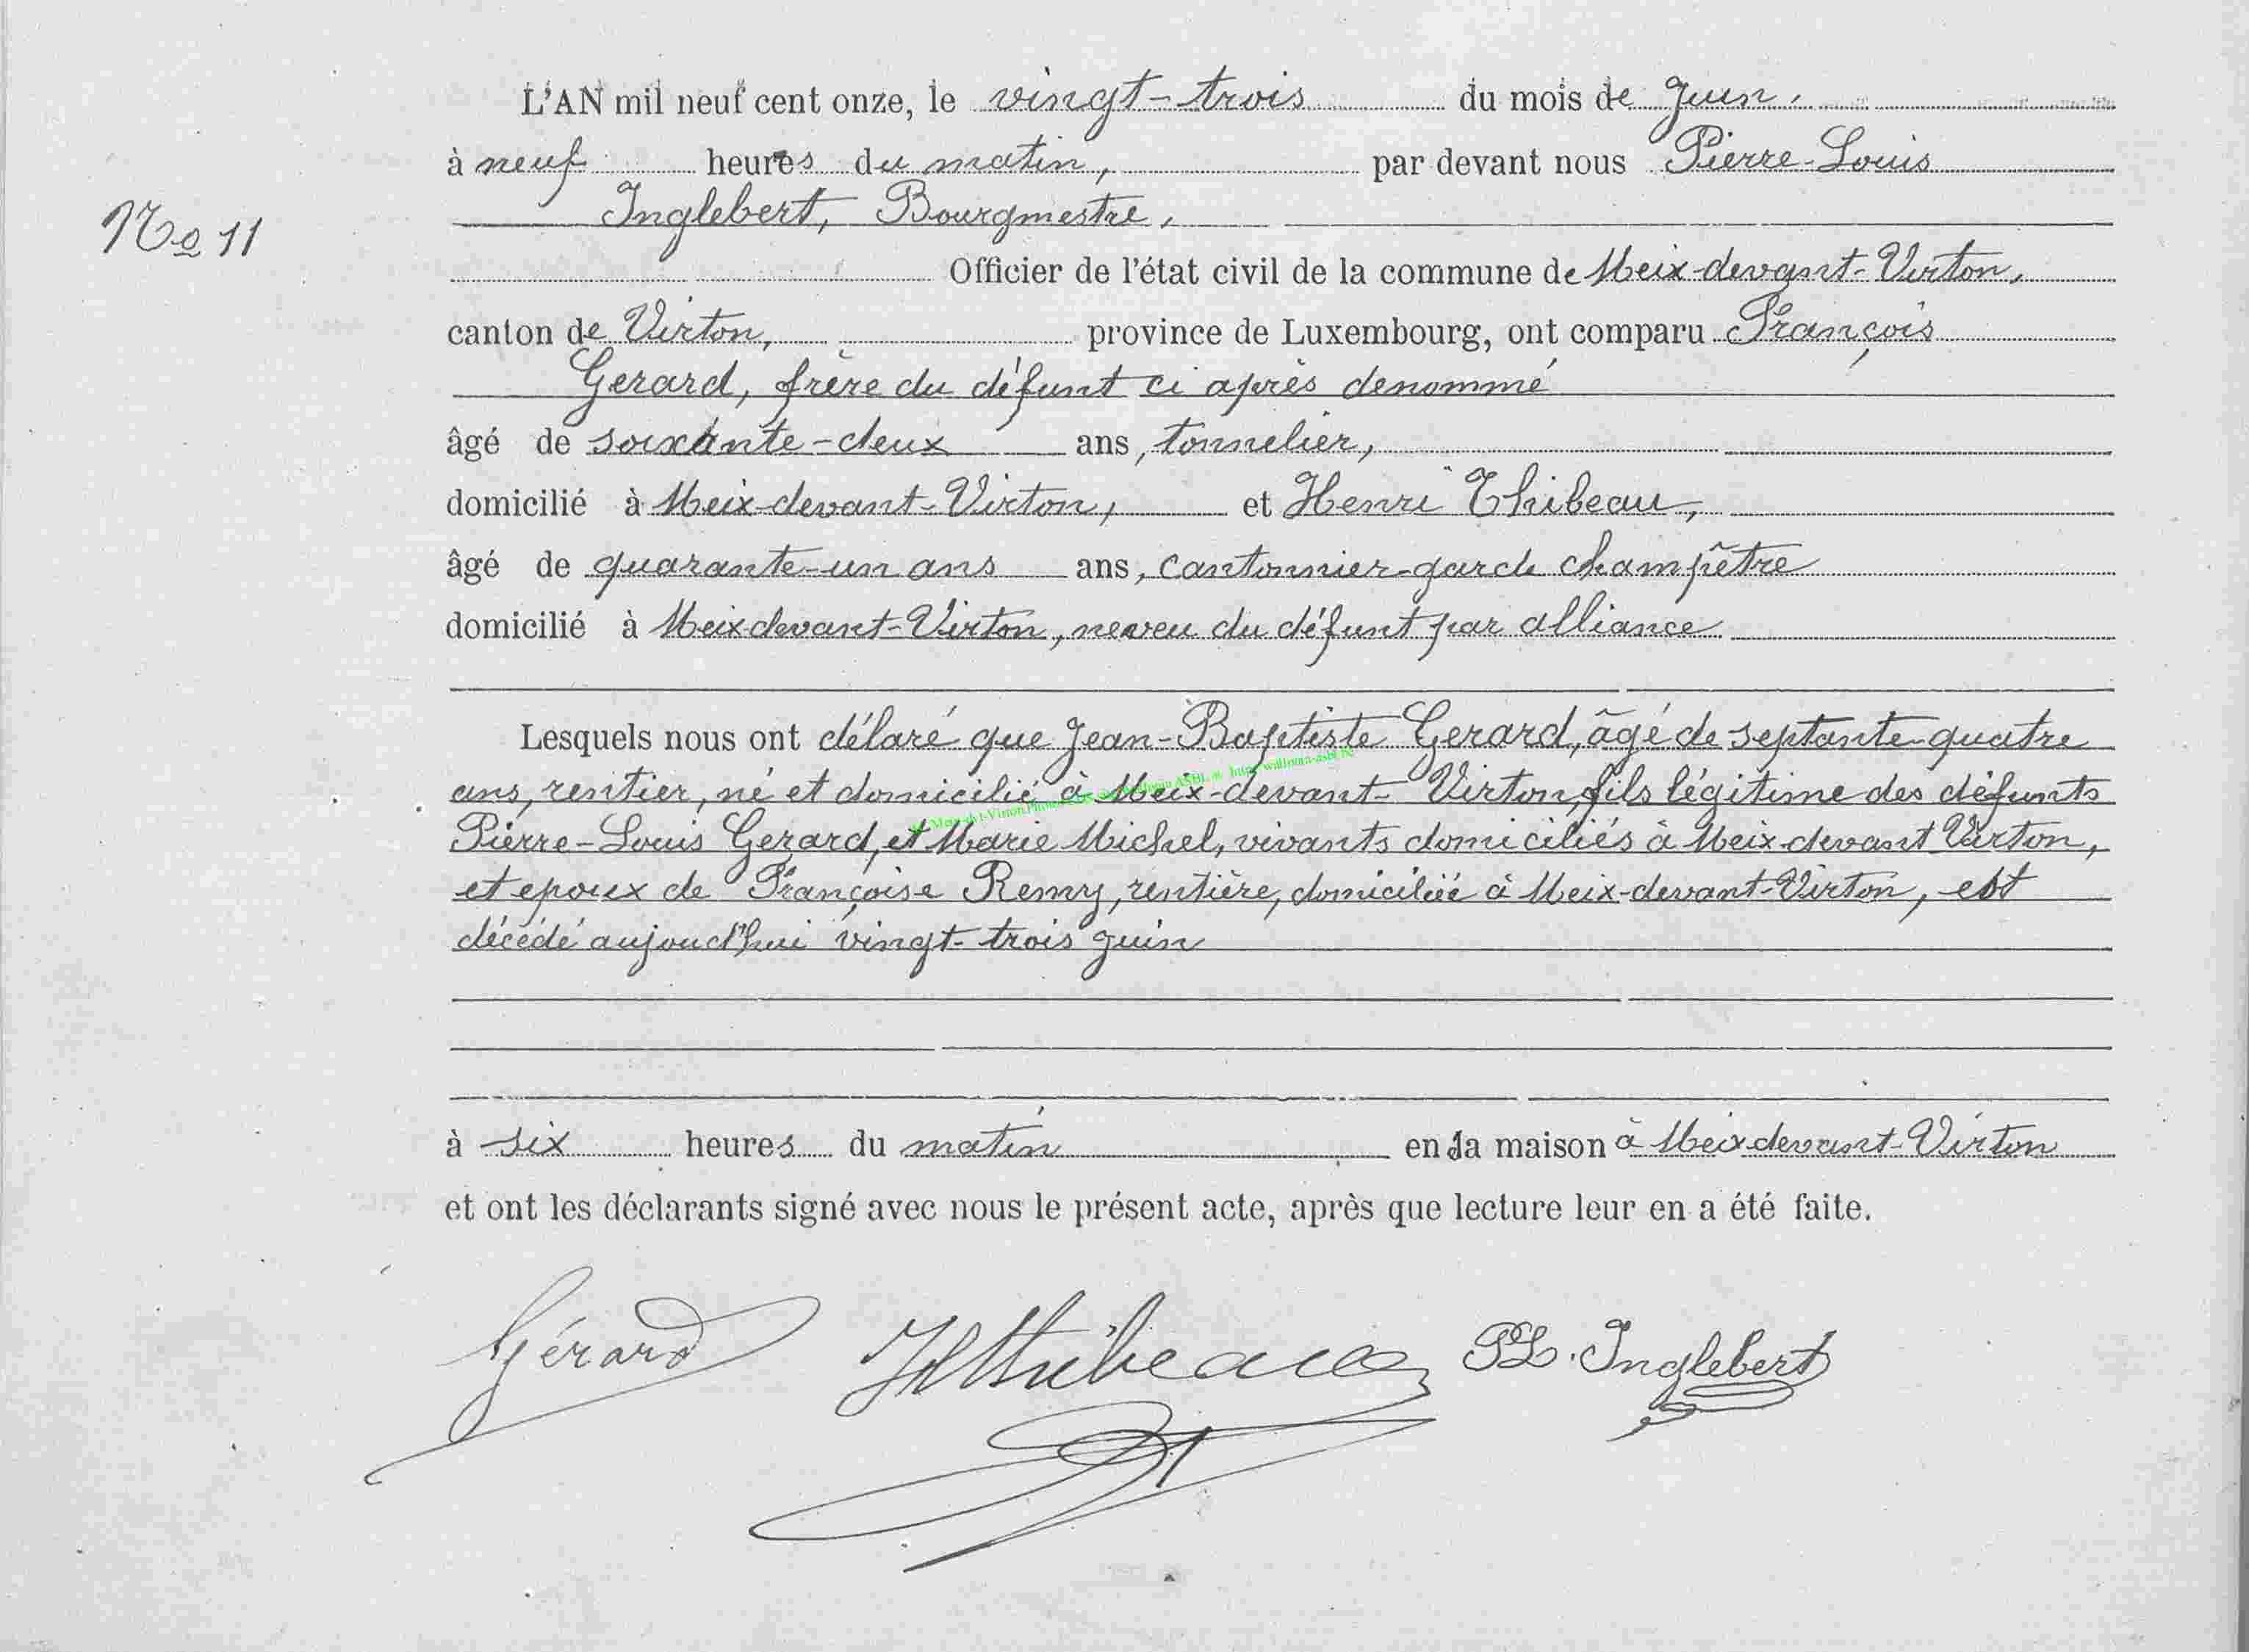 L'AN mil neuf cent onze, le vingt-trois du mois de Juin,
à neuf heures du matin, par devant nous Pierre-Louis
Inglebert, Bourgmestre,
No 11
Officier de l'état civil de la commune de Meix-devant-Virton,
canton de Virton, province de Luxembourg, ont comparu François
Gerard, frère du défunt ci après denommé
âgé de soixante-deux ans, tonnelier,
domicilié à Meix-devant-Virton, et Henri Thibeau,
âgé de quarante-un ans ans, cantonnier-garde champêtre
domicilié à Meix-devant-Virton, neveu du défunt par alliance
Lesquels nous ont délaré que Jean-Baptiste Gerard, âgé de septante-quatre
ans, rentier, né et domicilié à Meix-devant-Virton, fils légitime des défunts
Pierre-Louis Gerard, et Marie Michel, vivants domiciliés à Meix-devant Virton,
et epoux de Françoise Remy, rentière, domiciliée à Meix-devant-Virton, est
décédé aujoud'hui vingt-trois juin
à six heures du matin en la maison à Meix-devant-Virton
et ont les déclarants signé avec nous le présent acte, après que lecture leur en a été faite.
Gérard HThibeau PL. Inglebert